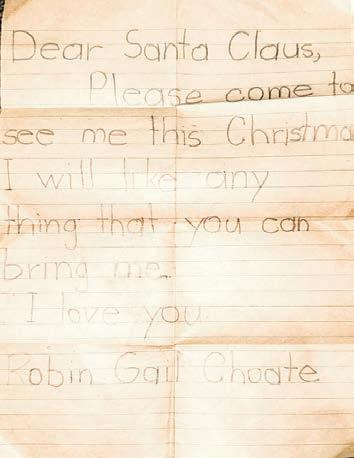 Dear Santa Claus,
Please come to
see me this Christma
I will like any
thing that you can
bring me.
I love you.
Robin Gail Choate